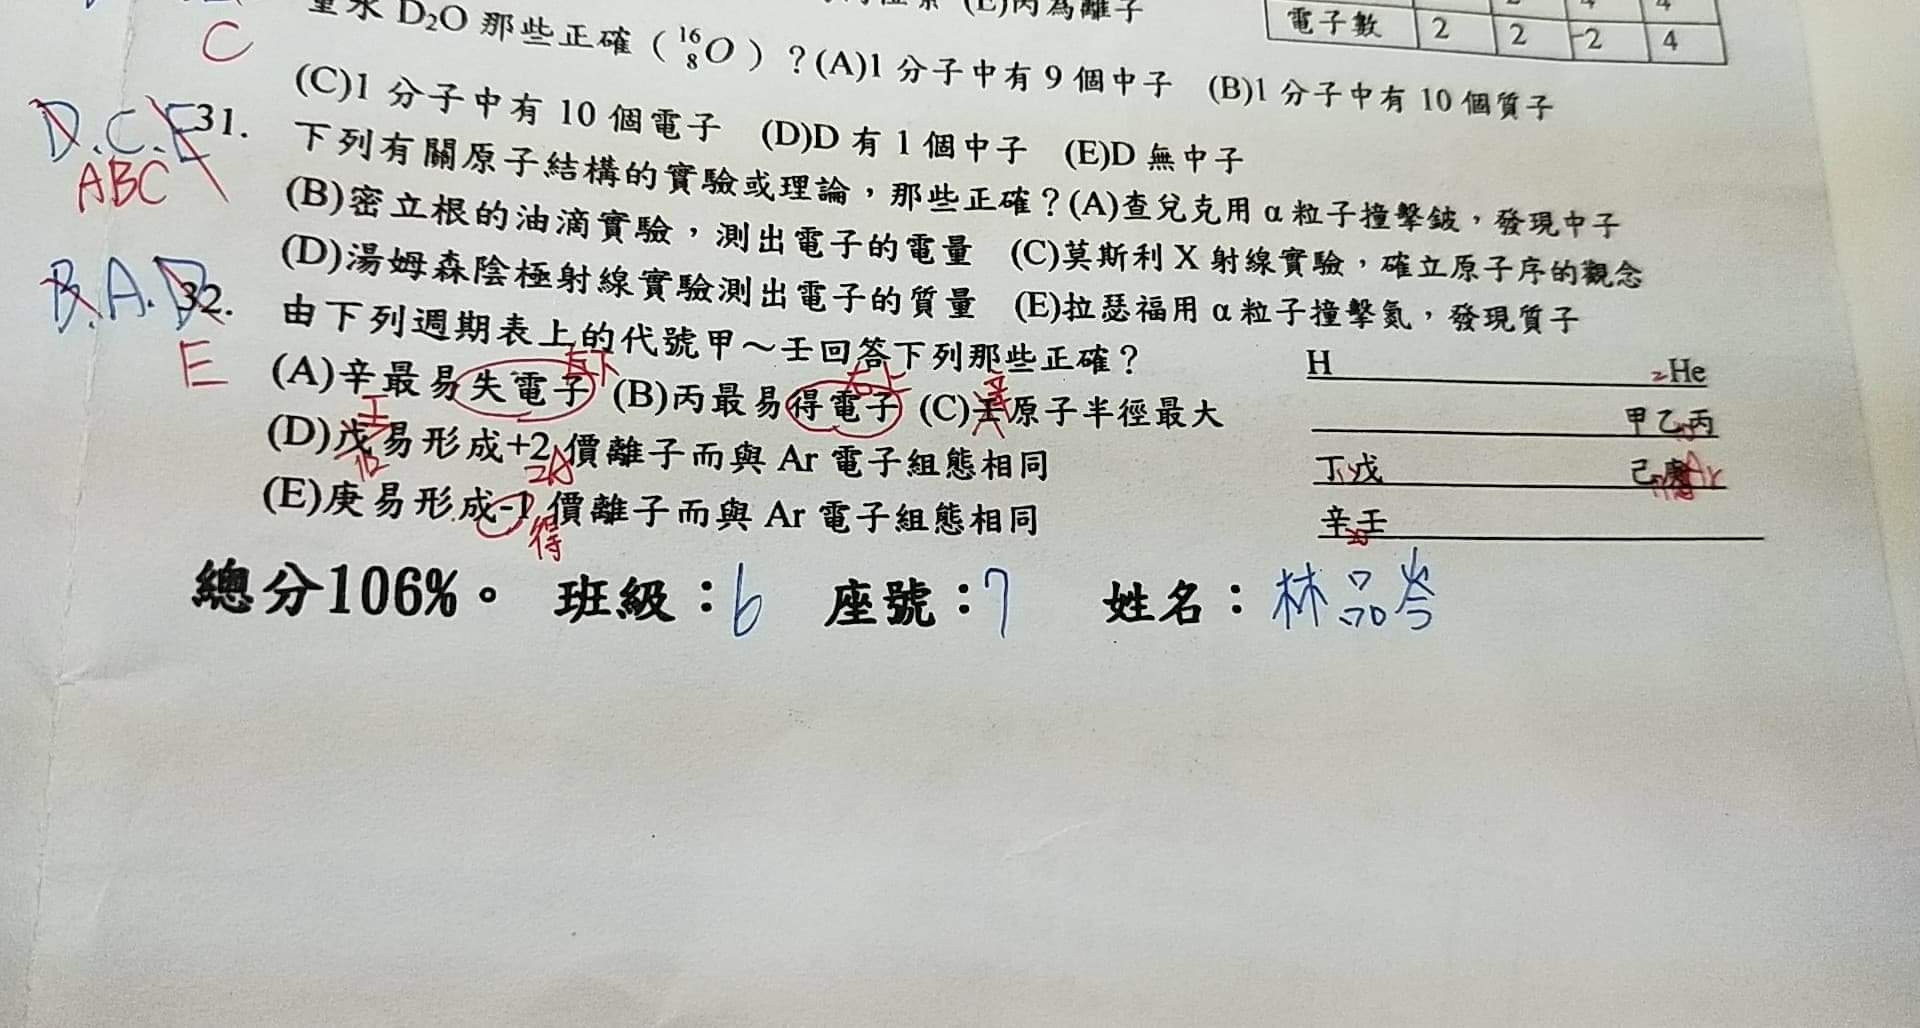 (E)丙為離子
電子數 2 2 -2 4
重水 D₂O 那些正確（¹⁶₈O）？(A)1 分子中有 9 個中子 (B)1 分子中有 10 個質子
C
(C)1 分子中有 10 個電子 (D)D 有 1 個中子 (E)D 無中子
D.C.E
ABC
31. 下列有關原子結構的實驗或理論，那些正確？(A)查兌克用 α 粒子撞擊鈹，發現中子
(B)密立根的油滴實驗，測出電子的電量 (C)莫斯利 X 射線實驗，確立原子序的觀念
(D)湯姆森陰極射線實驗測出電子的質量 (E)拉瑟福用 α 粒子撞擊氮，發現質子
B.A.D
E
32. 由下列週期表上的代號甲～壬回答下列那些正確？
左下
右上
辛
(A)辛最易失電子 (B)丙最易得電子 (C)壬原子半徑最大
壬
(D)戊易形成+2 價離子而與 Ar 電子組態相同
2A
(E)庚易形成-1 價離子而與 Ar 電子組態相同
得
H 2He
甲乙丙
丁戊 己庚Ar
辛壬
總分106%。 班級：6 座號：7 姓名：林品岑